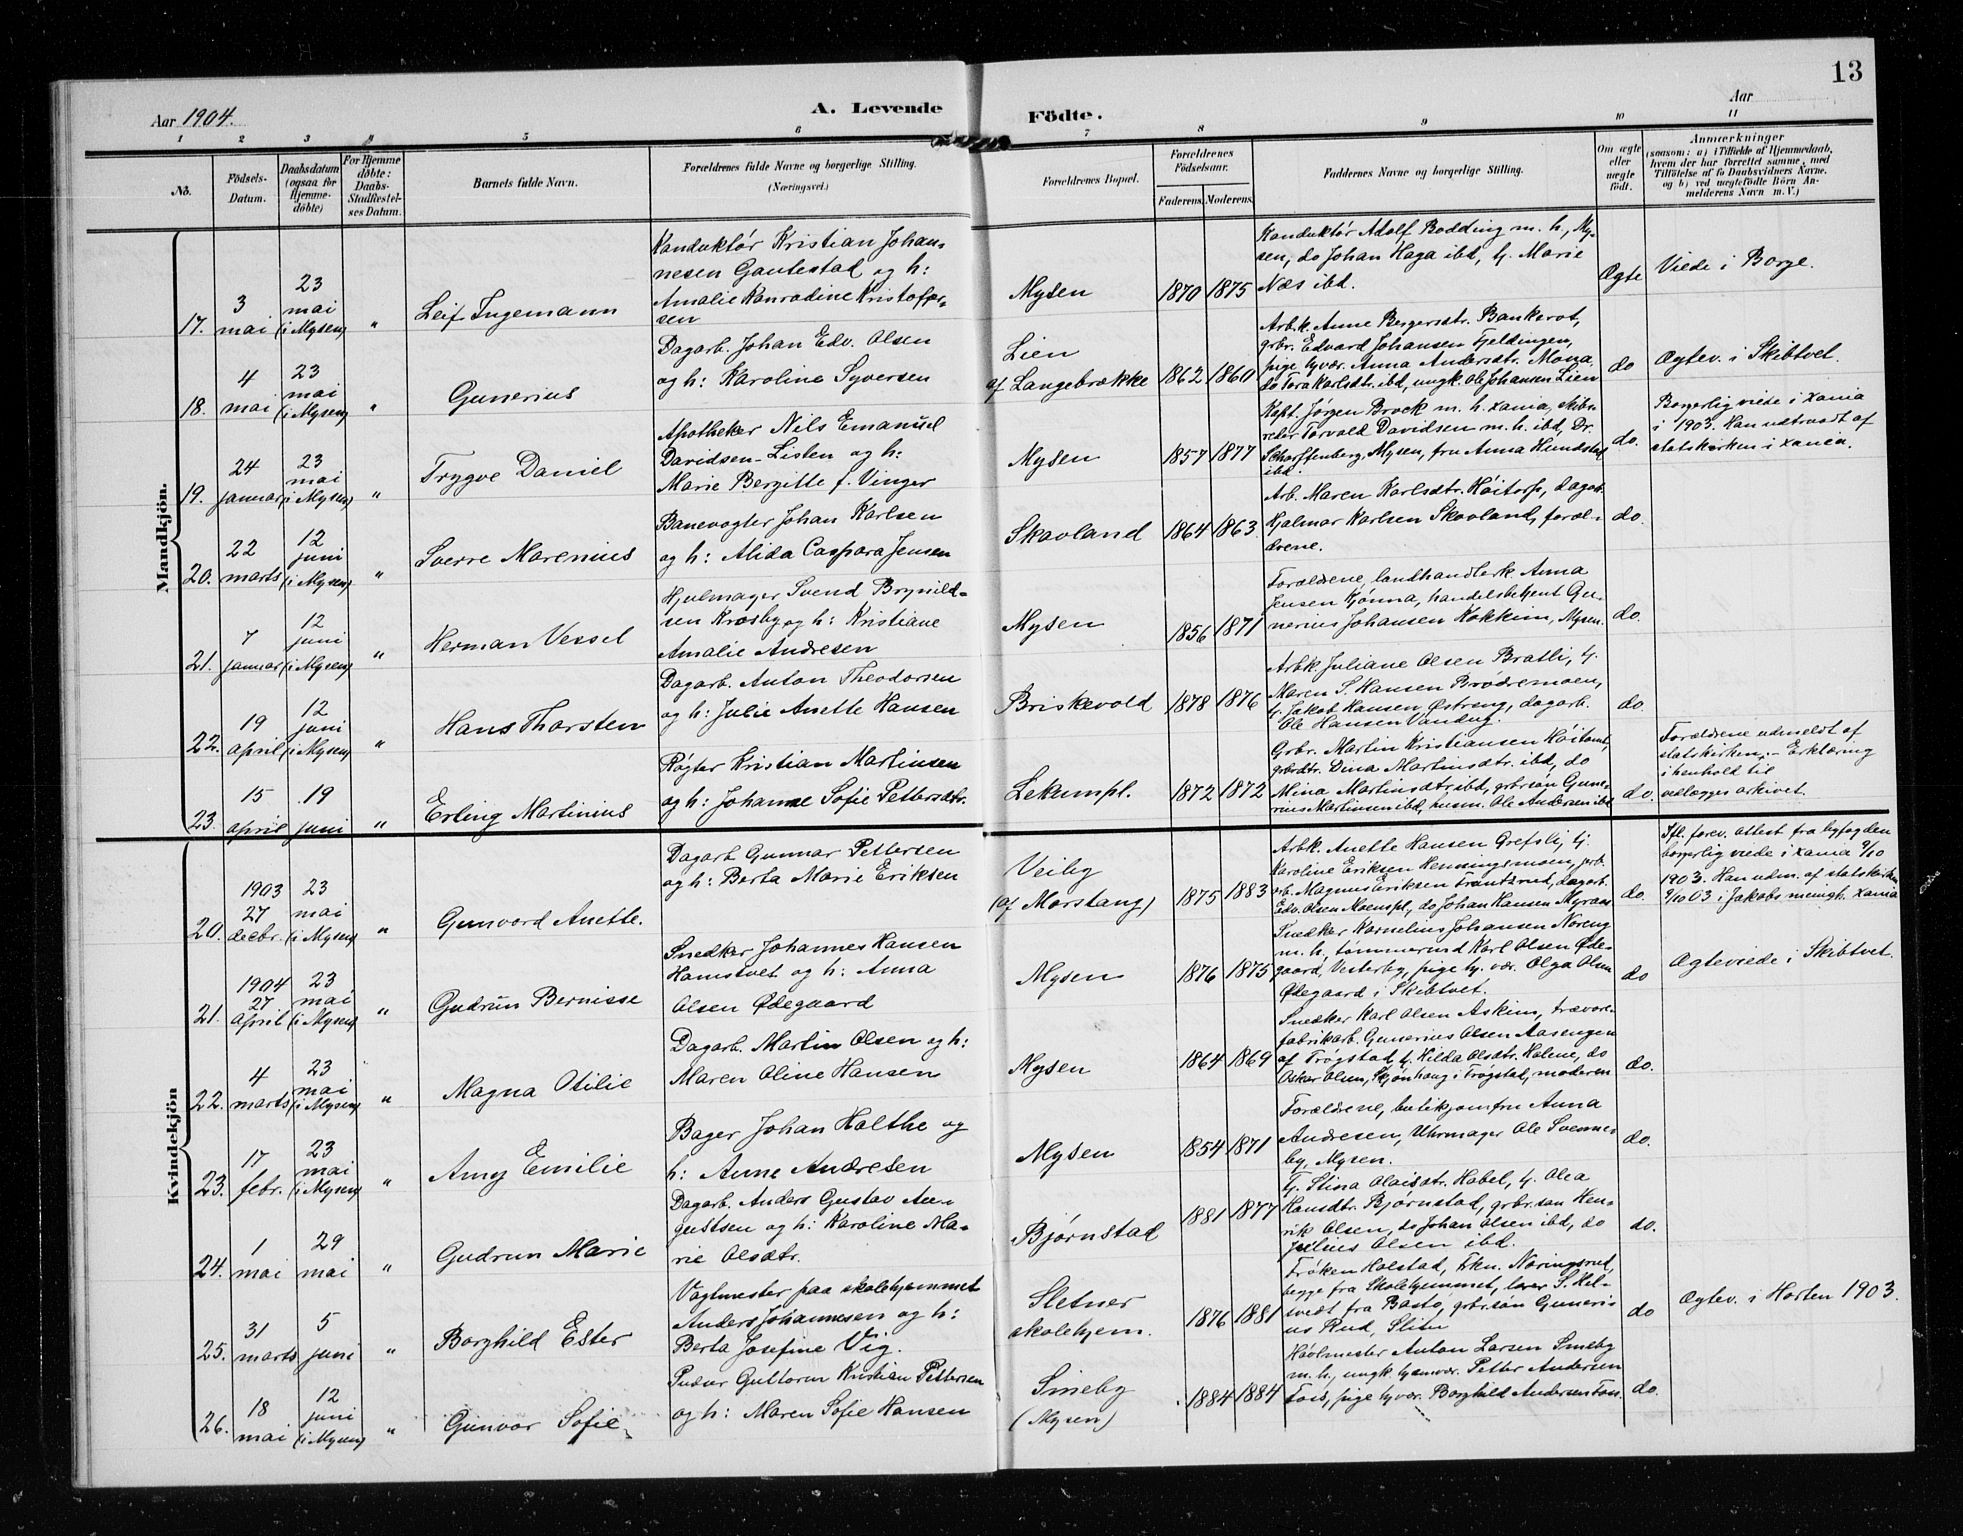 13
Aar 1904.
A. Levende
Födte.
Aar
1 2 3 4 5 6 7 8 9 10 11
No.
Födsels-
Datum.
Daabsdatum
(ogsaa for
Hjemme-
døbte)
For Hjemme
døbte:
Daabs-
Stadfæstel-
ses Datum.
Barnets fulde Navn.
Forældrenes fulde Navne og borgerlige Stilling.
(Næringsvei.)
Forældrenes Bopæl.
Forældrenes
Födselsaar.
Faderens. Moderens.
Faddernes Navne og borgerlige Stilling.
Om ægte
eller
uægte
födt.
Anmærkninger
(saasom: a) i Tilfælde af Hjemmedaab,
hvem der har forrettet samme, med
Tilföielse af to Daabsvidners Navne.
og b) ved uægtefödte Börn An-
melderens Navn m. V.)
Mandkjön.
17. 3 mai 23 mai (i Mysen) " Leif Ingemann
Konduktør Kristian Johan-
nesen Gautestad og h:
Amalie Konradine Kristofer-
sen
Mysen 1870 1875
Konduktør Adolf Bodding m. h., My-
sen, do Johan Haga ibd, hj. Marie
Næs ibd.
Ægte Viede i Borge.
18. 4 mai 23 mai (i Mysen) " Gunerius
Dagarb. Johan Edv. Olsen
og h: Karoline Syversen
Lien
af Langebrække 1862 1860
Arbk. Anne Bergersdtr. Bankerot,
grbr. Edvard Johansen Fjeldingen,
pige hj.vær. Anna Andersdtr. Mona,
do Tora Karlsdtr. ibd, ungk. Ole Johansen Lien
do Ægtev. i Skibtvet.
19. 24 januar 23 mai (i Mysen) " Trygve Daniel
Apotheker Nils Emanuel
Davidsen-Listen og h:
Marie Bergitte f. Vinger
Mysen 1857 1877
Kapt. Jørgen Brock m. h. Xania, skibs-
reder Torvald Davidsen m. h. ibd, Dr.
Scharffenberg, Mysen, fru Anna Hundstad
ibd.
do.
Borgerlig viede i Xania
i 1903. Han udtraadt af
statskirken i Xania.
20. 22 marts 12 juni (i Mysen) " Sverre Marenius
Banevogter Johan Karlsen
og h: Alida Caspara Jensen
Skovland 1864 1863
Arb. Maren Karlsdtr. Höitorp, dagarb.
Hjalmar Karlsen Skovland, foræl-
drene.
do.
21. 7 januar 12 juni (i Mysen) " Herman Vessel
Hjulmager Svend Brynild-
sen Krosby og h: Kristiane
Amalie Andresen
Mysen 1856 1871
Forældrene, landhandlersk Anna
Jensen Kjønna, handelsbetjent Gu-
nerius Johansen Kokkim, Mysen.
do.
22. 19 april 12 juni (i Mysen) " Hans Thorsten
Dagarb. Anton Theodorsen
og h: Julie Anette Hansen
Briskevold 1878 1876
Arbk. Juliane Olsen Bratli, hj.
Maren S. Hansen Brødremoen,
hj. Jakob Hansen Østreng, dagarb.
Ole Hansen Vandug.
do.
23. 15 april 19 juni " Erling Martinius
Røgter Kristian Martinsen
og h: Johanne Sofie Pettersdtr.
Lekumpl. 1872 1872
Grbr. Martin Kristiansen Höitomt,
grbrdtr. Dina Martinsdtr. ibd, do
Mina Martinsdtr. ibd, grbrsön Gune-
rius Martinsen ibd, husm. Ole Andersen ibd
do.
Forældrene udmeldt af
statskirken. – Erklæring
i henhold til
vedlægges arkivet.
Kvindekjön
20. 1903 27 decbr. 23 mai (i Mysen) " Gunvord Anette.
Dagarb. Gunnar Pettersen
og h: Berta Marie Eriksen
Veiby
(af Morstang) 1875 1883
Arbk. Anette Hansen Grefsli, hj.
Karoline Eriksen Henningsmoen, jerb.
arb. Magnus Eriksen Frantzrud, dagarb.
Edv. Olsen Moenspl, do Johan Hansen Myraas
do.
Ifl. forev. attest fra byfogden
borgerlig viede i Xania 9/10
1903. Han udm. af statskirken
9/10 03 i Jakobs menigh. Xania
21. 1904 27 April 23 mai (i Mysen) " Gudrun Bernisse
Snedker Johannes Hansen
Hamstvet og h: Anna
Olsen Ødegaard
Mysen 1876 1875
Snedker Kornelius Johansen Noreng
m. h., tømmermd Karl Olsen Øde-
gaard, Vesterby, pige hj. vær. Olga Olsen
Ødegaard i Skibtvet.
do Ægteviede i Skibtvet.
22. 4 marts 23 mai (i Mysen) " Magna Otilie
Dagarb. Martin Olsen og h:
Maren Oline Hansen
Mysen 1864 1869
Snedker Karl Olsen Askim, trævare-
fabrikarb. Gunerius Olsen Aasengen
af Trøgstad, hj. Hilda Olsdtr. Halene, do
Oskar Olsen, Skjönhaug i Trøgstad, moderen
do.
23. 17 febr. 23 mai (i Mysen) " Amy Emilie
Bager Johan Holthe og
h: Anne Andresen
Mysen 1854 1871
Forældrene, butikjomfru Anna
Andresen, Uhrmager Ole Svennes-
by, Mysen.
do.
24. 1 mai 29 mai " Gudrun Marie
Dagarb. Anders Gustav Au-
gustsen og h: Karoline Ma-
rie Olsdtr.
Bjørnstad 1881 1877
hj. Stina Olaisdtr. Habel, hj. Olea
Hansdtr. Bjørnstad, grbr.søn Hen-
rik Olsen, do Johan Olsen ibd, do
Julius Olsen ibd.
do.
25. 31 marts 5 juni " Borghild Ester
Vagtmester paa skolehjemmet
Anders Johannesen og h:
Berta Josefine Vig.
Sletner
skolehjem. 1876 1881
Frøken Holstad, Frkn. Noringsrud,
begge fra Skolehjemmet, lærer S. Hel-
svedt fra Bastø, grbr.søn Guneri-
us Rud, Slitu
do Ægtev. i Horten 1903.
26. 18 mai 12 juni (i Mysen) " Gunvor Sofie
Guttorm Kristian Pettersen
og h: Maren Sofie Hansen
Smeby
(Mysen) 1884 1884
Hovlmester Anton Larsen Smeby
m. h., ungk. hjemvær. Petter Andersen
Fois, pige hj.vær. Borghild Andersen Fon.
do.